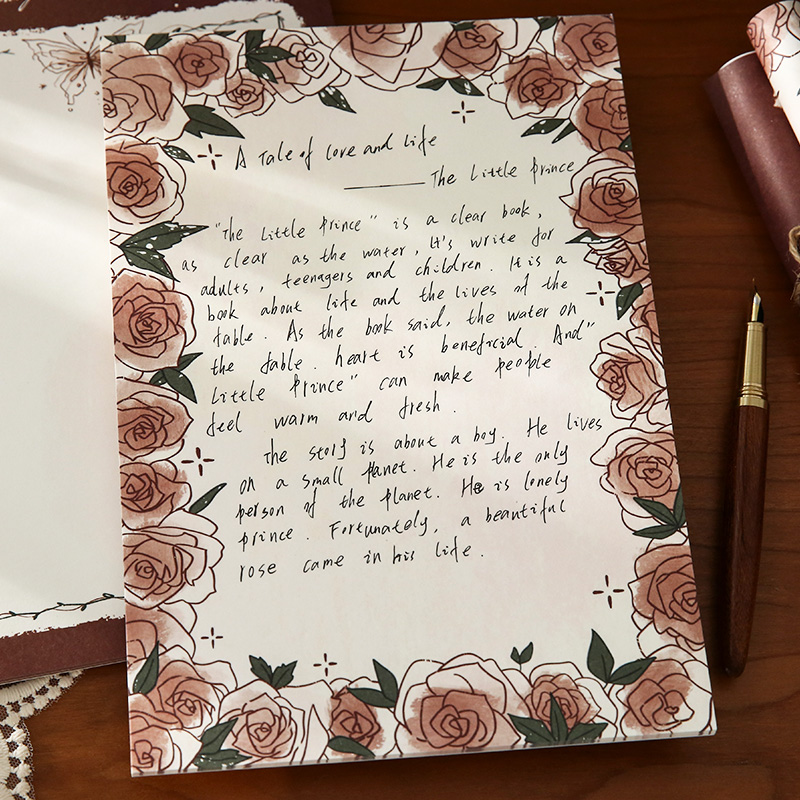 A Tale of Love and Life
——— The Little Prince
"The Little Prince" is a clear book,
as clear as the water, It's write for
adults, teenagers and children. It is a
book about life and the lives of the
table. As the book said, the water on
the table. heart is beneficial. And"
Little Prince" can make people
feel warm and fresh.
The story is about a boy. He lives
on a small planet. He is the only
person of the planet. He is lonely
prince. Fortunately, a beautiful
rose came in his life.